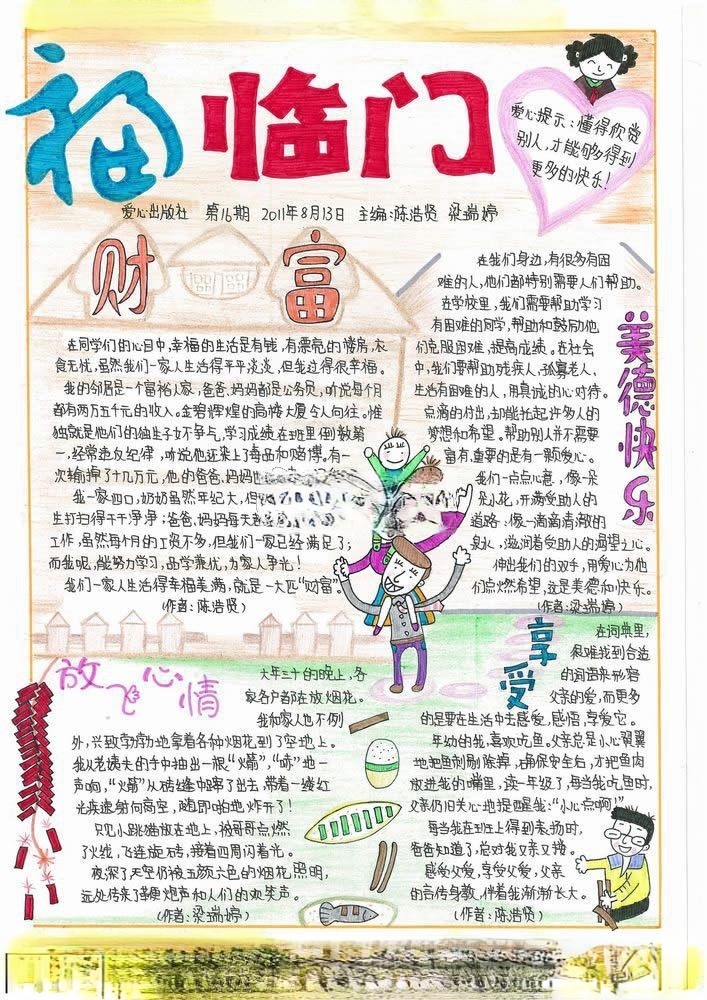 福临门
爱心提示：懂得欣赏
别人，才能够多得到
更多的快乐！
爱心出版社 第16期 2011年8月13日 主编：陈浩贤 梁瑞婷
财富
在同学们的心目中，幸福的生活是有钱，有漂亮的楼房，衣
食无忧，虽然我们一家人生活得平平淡淡，但我过得很幸福。
我的邻居是一个富裕人家，爸爸、妈妈都是公务员，听说每个月
都有两万五千元的收入。金碧辉煌的高楼大厦令人向往。惟
独就是他们的独生子女不争气，学习成绩在班里倒数第
一，经常违反纪律，听说他还染上了毒品和赌博。有一
次输掉了十几万元，他的爸爸、妈妈也
我一家四口，奶奶虽然年纪大，但
生打扫得干干净净；爸爸、妈妈每天
工作，虽然每个月的工资不多，但我们一家已经满足了；
而我呢，能努力学习，品学兼优，为家人争光！
我们一家人生活得幸福美满，就是一大匹“财富”。
（作者：陈浩贤）
美德快乐
在我们身边，有很多有困
难的人，他们都特别需要人们帮助。
在学校里，我们需要帮助学习
有困难的同学，帮助和鼓励他
们克服困难，提高成绩。在社会
中，我们要帮助残疾人、孤寡老人、
生活有困难的人，用真诚的心对待。
点滴的付出，却能托起许多人的
梦想和希望。帮助别人并不需要
富有，重要的是有一颗爱心。
我们一点点心意，像一朵
朵小花，开满受助人的
道路；像一滴滴清澈的
泉水，滋润着受助人的渴望之心。
伸出我们的双手，用爱心为他
们点燃希望，这是美德和快乐。
（作者：梁瑞婷）
放飞心情
大年三十的晚上，各
家各户都在放烟花。
我和家人也不例
外，兴致勃勃地拿着各种烟花到了空地上。
我从老姨夫的手中抽出一根“火箭”，“哧”地一
声响，“火箭”从砖缝中蹿了出去，带着一缕红
光疾速射向高空，随即啪地炸开了！
只见小跳猫放在地上，被哥哥点燃
了火线，飞速旋转，接着四周闪着光。
夜深了天空仍被五颜六色的烟花照明，
远处传来了鞭炮声和人们的欢笑声。
（作者：梁瑞婷）
享受
在词典里，
很难找到合适
的词语来形容
父亲的爱，而更多
的是要在生活中去感爱，感悟，享爱它。
年幼的我，喜欢吃鱼。父亲总是小心翼翼
地把鱼刺剔除掉，确保安全后，才把鱼肉
放进我的嘴里，读一年级了，每当我吃鱼时，
父亲仍旧关心地提醒我：“小心点啊！”
每当我在班上得到表扬时，
爸爸知道了，总对我又亲又搂。
感受父爱，享受父爱，父亲
的言传身教，伴着我渐渐长大。
（作者：陈浩贤）